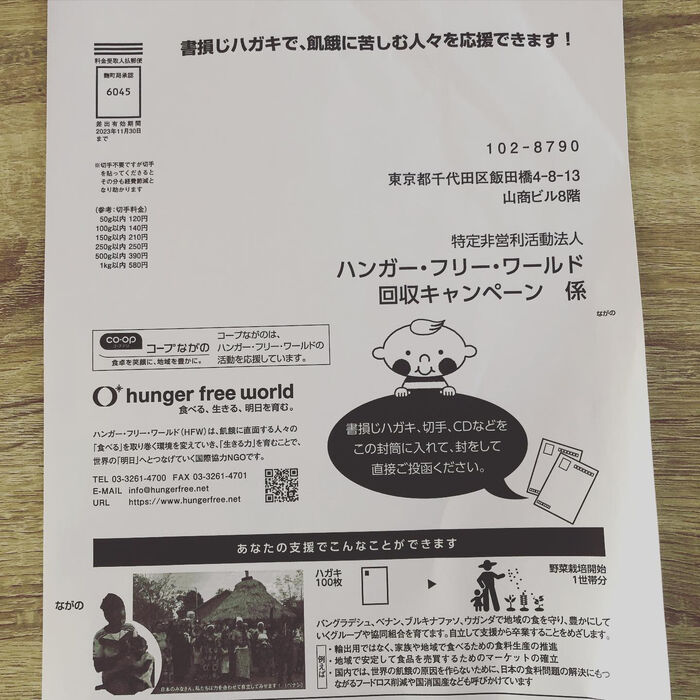 書損じハガキで、飢餓に苦しむ人々を応援できます!
料金受取人払郵便
麴町局承認
6045
差出有効期間
2023年11月30日
まで
※切手不要ですが切手
を貼ってくださると
その分も経費節減と
なり助かります
(参考:切手料金)
50g以内 120円
100g以内 140円
150g以内 210円
250g以内 250円
500g以内 390円
1kg以内 580円
102-8790
東京都千代田区飯田橋4-8-13
山商ビル8階
特定非営利活動法人
ハンガー・フリー・ワールド
回収キャンペーン 係
ながの
co・op
コープながの
食卓を笑顔に、地域を豊かに。
コープながのは、
ハンガー・フリー・ワールドの
活動を応援しています。
hunger free world
食べる、生きる、明日を育む。
ハンガー・フリー・ワールド(HFW)は、飢餓に直面する人々の
「食べる」を取り巻く環境を変えていき、「生きる力」を育むことで、
世界の「明日」へとつなげていく国際協力NGOです。
TEL 03-3261-4700 FAX 03-3261-4701
E-MAIL info@hungerfree.net
URL https://www.hungerfree.net
書損じハガキ、切手、CDなどを
この封筒に入れて、封をして
直接ご投函ください。
あなたの支援でこんなことができます
ながの
日本のみなさん、私たちは力を合わせて自立してみせます!(ベナン)
ハガキ
100枚
野菜栽培開始
1世帯分
バングラデシュ、ベナン、ブルキナファソ、ウガンダで地域の食を守り、豊かにして
いくグループや協同組合を育てます。自立して支援から卒業することをめざします。
例えば
・輸出用ではなく、家族や地域で食べるための食料生産の推進
・地域で安定して食品を売買するためのマーケットの確立
・国内では、世界の飢餓の原因を作らないために、日本の食料問題の解決にもつ
ながるフードロス削減や国消国産なども呼びかけています